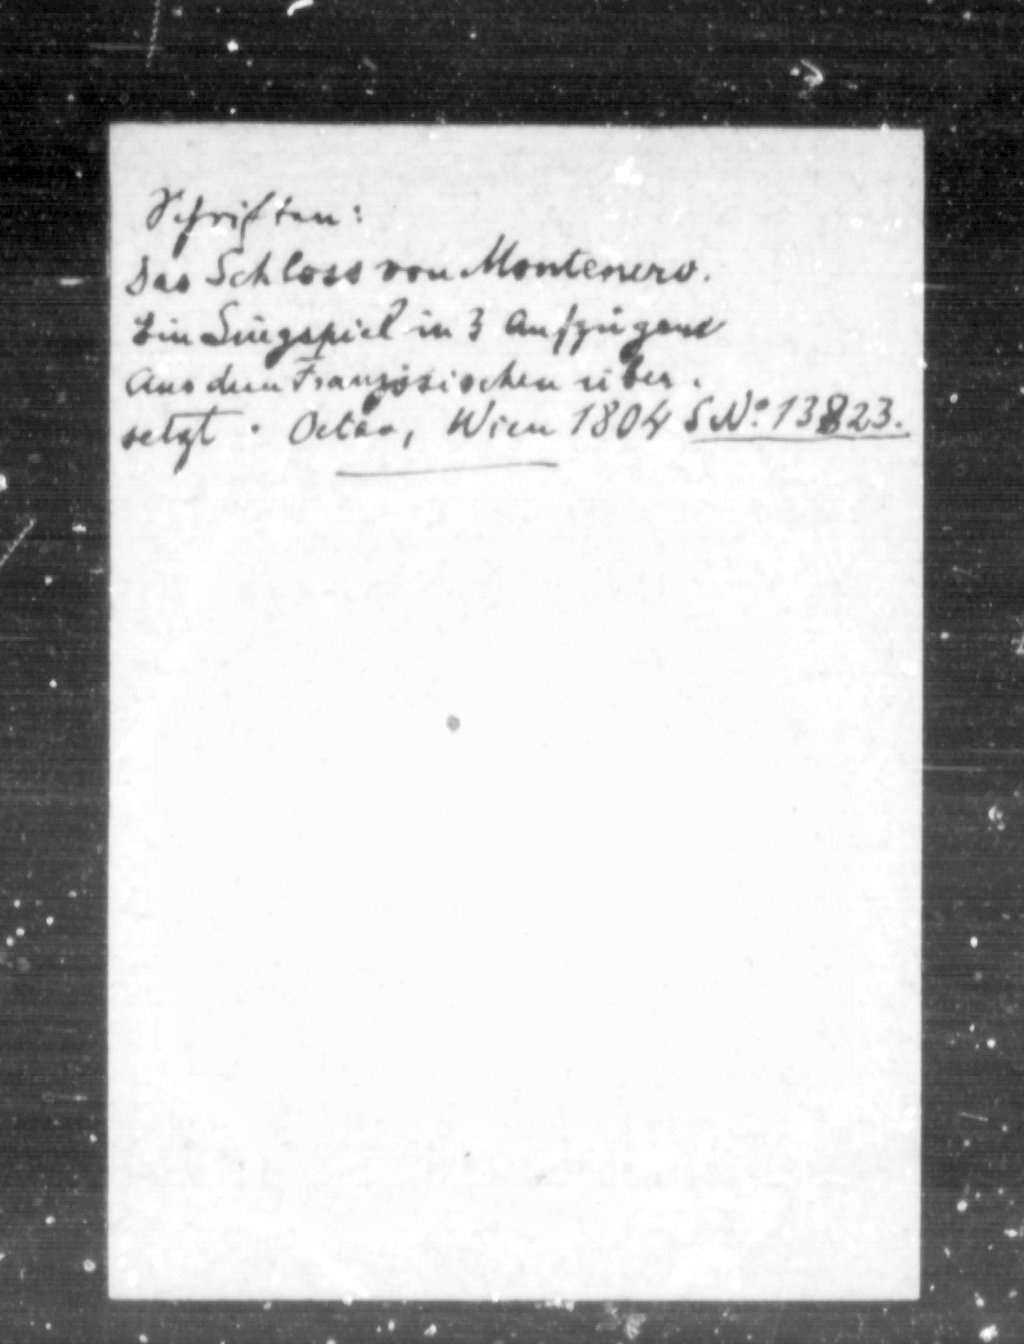 Schriften:
Das Schloss von Montenero.
Ein Singspiel in 3 Aufzügen
Aus dem Französischen über.
setzt. Octav, Wien 1804 S.No. 13823.